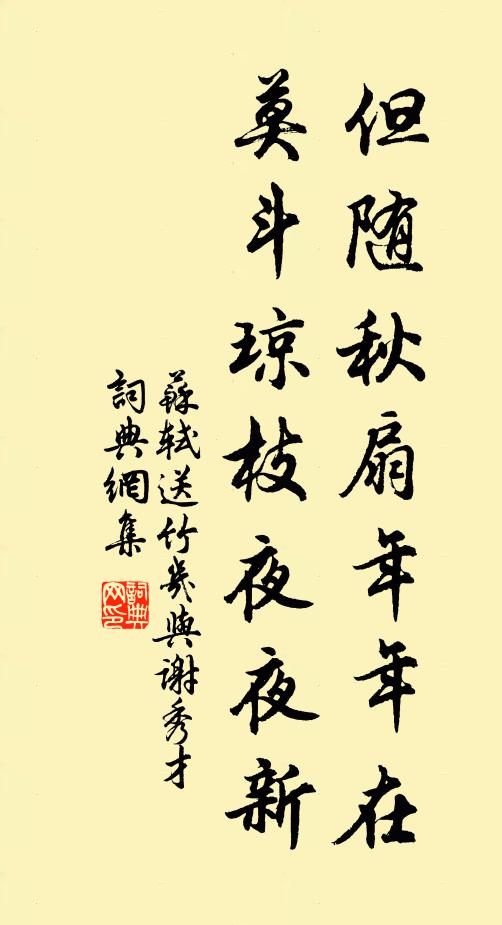 但随秋扇年年在
莫斗琼枝夜夜新
蘇軾送竹几與謝秀才
詞典網集
詞典
网印